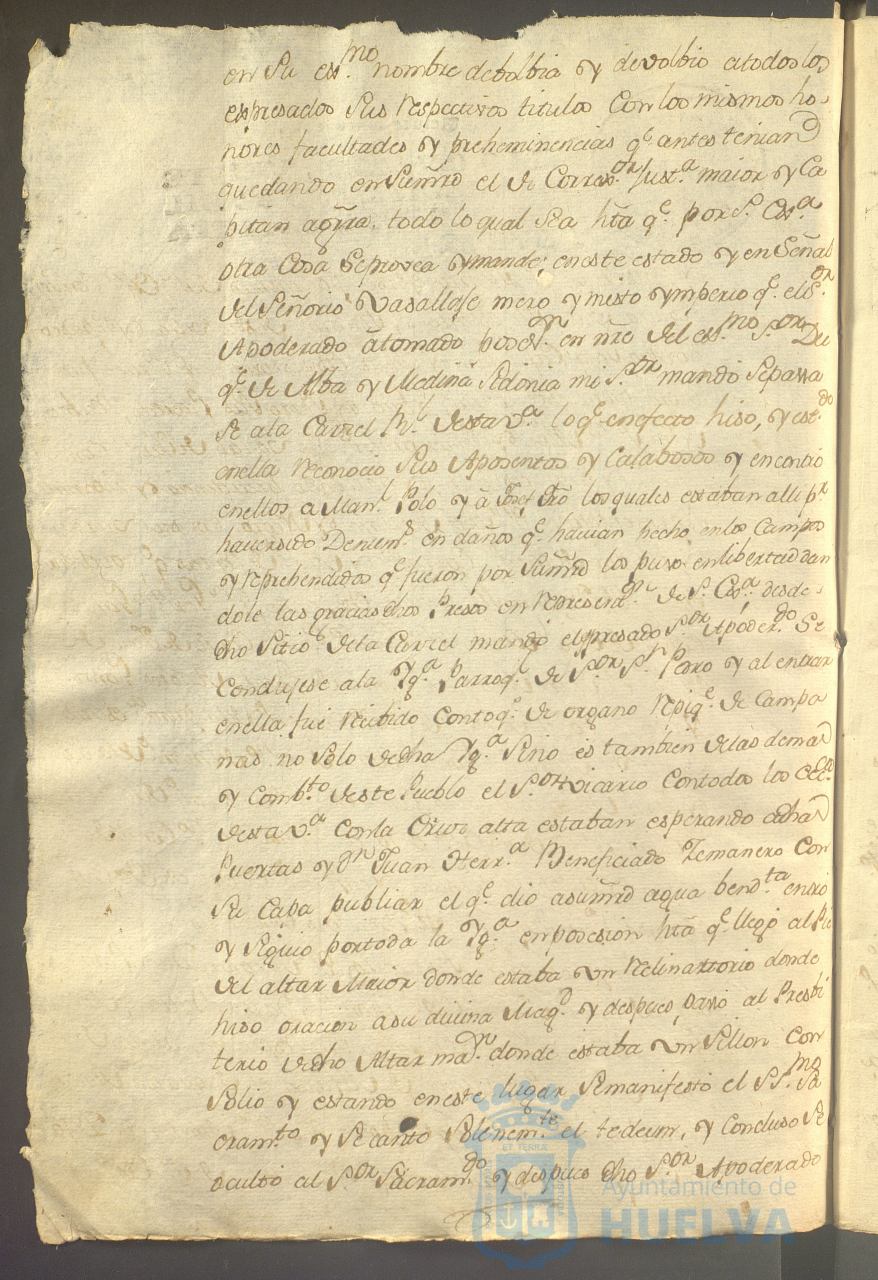 en su ex.mo nombre debolbia y devolbio a todos los
expresados sus respectivos titulos con los mismos ho-
nores facultades y preheminencias q.e antes tenian
quedando en su mrd el de Corregor. Just.a maior y Ca
pitan a grra. todo lo qual sea hta q.e por S. Ex.a
otra cosa se provea y mande; en este estado y en señal
del señorio vasallaje mero y misto ymperio q.e el S.or
Apoderado a tomado poses.on en nre del ex.mo S.or Du
q.e de Alba y Medina Sidonia mi S.or mandó se pasa
se a la Carzel R.l desta V.a lo q.e en efecto hiso, y est.do
en ella reconocio sus Aposentos y Calabosos y encontro
en ellos a Man.l Polo y á Josef los quales estaban alli p.r
haver sido Denun.s en daños q.e havian hecho en los Campos
y reprehendidos q.e fueron por su mrd los puso en libertad dan
dole las gracias dhos Presos en representn. de S. Ex.a desde
dho sitio de la Carzel mandó el presado S.or Apoder.do se
condujese a la Yg.a Parroq. de S.or S.n Pedro y al entrar
en ella fue recibido con toq.e de organo repiq.e de Campa
nas no solo de dha Yg.a sino es tambien de las demas
y Comb.to deste Pueblo el S.or vicario con todos los Ecc.a
desta V.a con la Crus alta estaban esperando a dhas
Puertas y Dn Juan Herr.a Beneficiado Zemanero con
su capa publiar el q.e dio a su mrd agua bend.ta entró
y siguio por toda la Yg.a en posesion hta q.e llegó al Pie
del altar Maior donde estaba un reclinartorio donde
hiso oracion a su divina Mag.d y despues pasó al Presbi
terio de dho Altar ma.r donde estaba un sillon con
solio y estando en este lugar se manifestó el SS.mo Sa
cram.to y se cantó solenem.te el tedeum, y concluso se
ocultó al S.or Sacram.do y despues dho S.or Apoderado
Ayuntamiento de
HUELVA